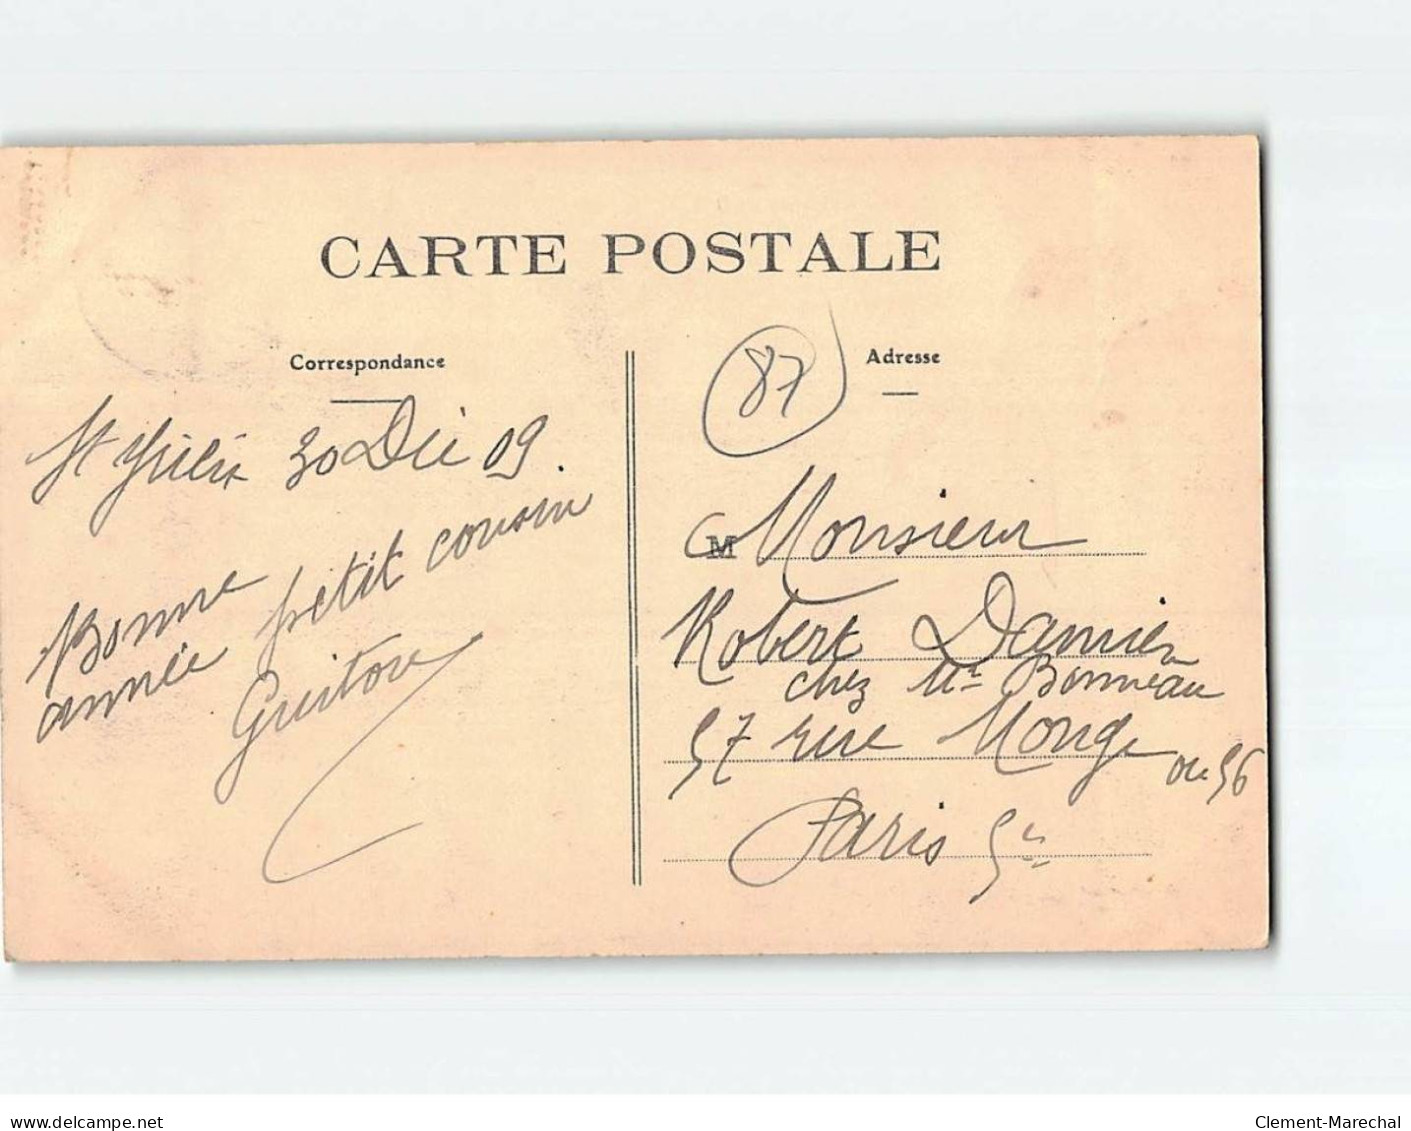 CARTE POSTALE
Correspondance
Adresse
87
St Yrieix 30 Déc 09.
Bonne
année petit cousin
M Monsieur
Robert Damien
chez Mr Bonneau
57 rue Monge ou 56
Paris 5e
delcampe.net
Clement-Marechal